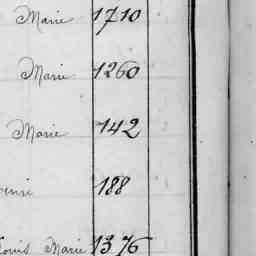 Marie 1710
Marie 1260
Marie 142
188
Louis Marie 1376